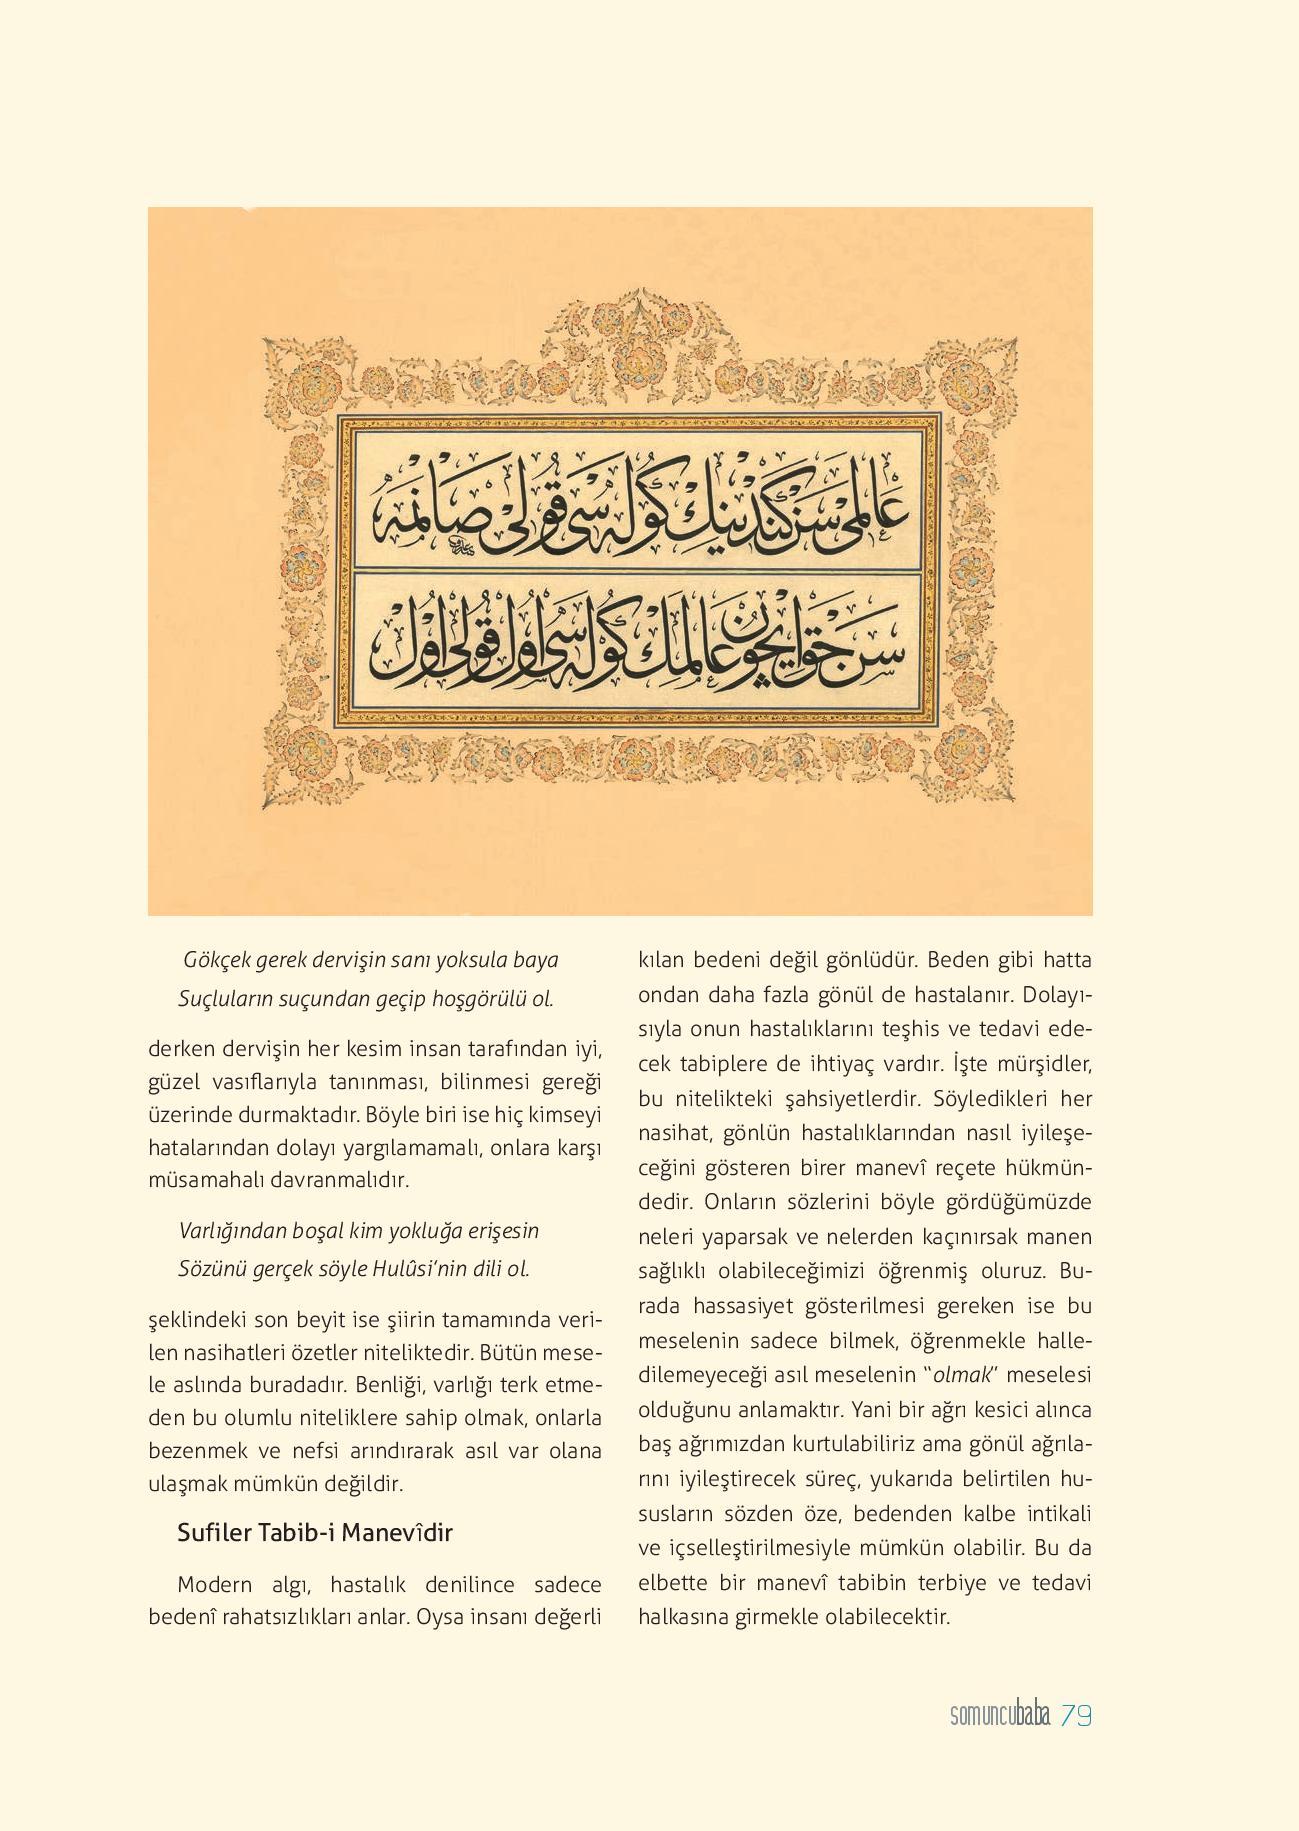 عالمى سن كندينك كوله سى قولى صانمه
سن حق ايچون عالمك كوله سى اول قولى اول
Gökçek gerek dervişin sanı yoksula baya
Suçluların suçundan geçip hoşgörülü ol.
derken dervişin her kesim insan tarafından iyi,
güzel vasıflarıyla tanınması, bilinmesi gereği
üzerinde durmaktadır. Böyle biri ise hiç kimseyi
hatalarından dolayı yargılamamalı, onlara karşı
müsamahalı davranmalıdır.
Varlığından boşal kim yokluğa erişesin
Sözünü gerçek söyle Hulûsi’nin dili ol.
şeklindeki son beyit ise şiirin tamamında veri-
len nasihatleri özetler niteliktedir. Bütün mese-
le aslında buradadır. Benliği, varlığı terk etme-
den bu olumlu niteliklere sahip olmak, onlarla
bezenmek ve nefsi arındırarak asıl var olana
ulaşmak mümkün değildir.
Sufiler Tabib-i Manevîdir
Modern algı, hastalık denilince sadece
bedenî rahatsızlıkları anlar. Oysa insanı değerli
kılan bedeni değil gönlüdür. Beden gibi hatta
ondan daha fazla gönül de hastalanır. Dolayı-
sıyla onun hastalıklarını teşhis ve tedavi ede-
cek tabiplere de ihtiyaç vardır. İşte mürşidler,
bu nitelikteki şahsiyetlerdir. Söyledikleri her
nasihat, gönlün hastalıklarından nasıl iyileşe-
ceğini gösteren birer manevî reçete hükmün-
dedir. Onların sözlerini böyle gördüğümüzde
neleri yaparsak ve nelerden kaçınırsak manen
sağlıklı olabileceğimizi öğrenmiş oluruz. Bu-
rada hassasiyet gösterilmesi gereken ise bu
meselenin sadece bilmek, öğrenmekle halle-
dilemeyeceği asıl meselenin “olmak” meselesi
olduğunu anlamaktır. Yani bir ağrı kesici alınca
baş ağrımızdan kurtulabiliriz ama gönül ağrıla-
rını iyileştirecek süreç, yukarıda belirtilen hu-
susların sözden öze, bedenden kalbe intikali
ve içselleştirilmesiyle mümkün olabilir. Bu da
elbette bir manevî tabibin terbiye ve tedavi
halkasına girmekle olabilecektir.
somuncubaba 79